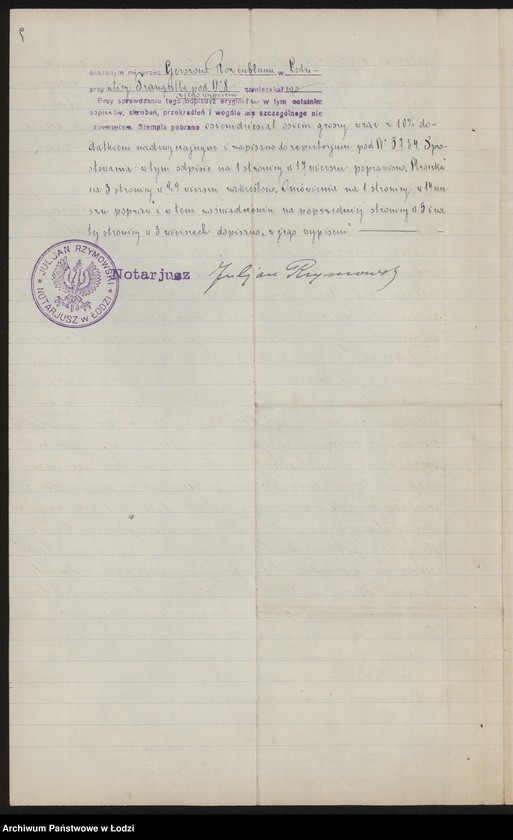 okazanym mi przez Gerszona Rozenbluma w Łodzi
przy ulicy Traugutta pod № 8 zamieszkałego
z jego wypisem
Przy sprawdzaniu tego odpisu z oryginałem w tym ostatnim
dopisków, skrobań, przekreśleń i wogóle nic szczególnego nie
zauważyłem. Stempla pobrano osiemdziesiąt osiem groszy wraz z 10% do-
datkiem nadzwyczajnym i zapisano do repertorjum pod № 3734. Spro-
stowania: w tym odpisie na 1 stronicy w 17 wierszu poprawiono,
na 3 stronicy w 29 wierszu zakreślono. Omówienia na 1 stronicy w 14 wie-
rszu poprawiono w tem zaświadczeniu na poprzedniej stronicy w 5 i na
tej stronicy w 3 wierszach dopisano „z jego wypisem”
JULJAN RZYMOWSKI
NOTARJUSZ w ŁODZI
Notarjusz Juljan Rzymowski
Archiwum Państwowe w Łodzi